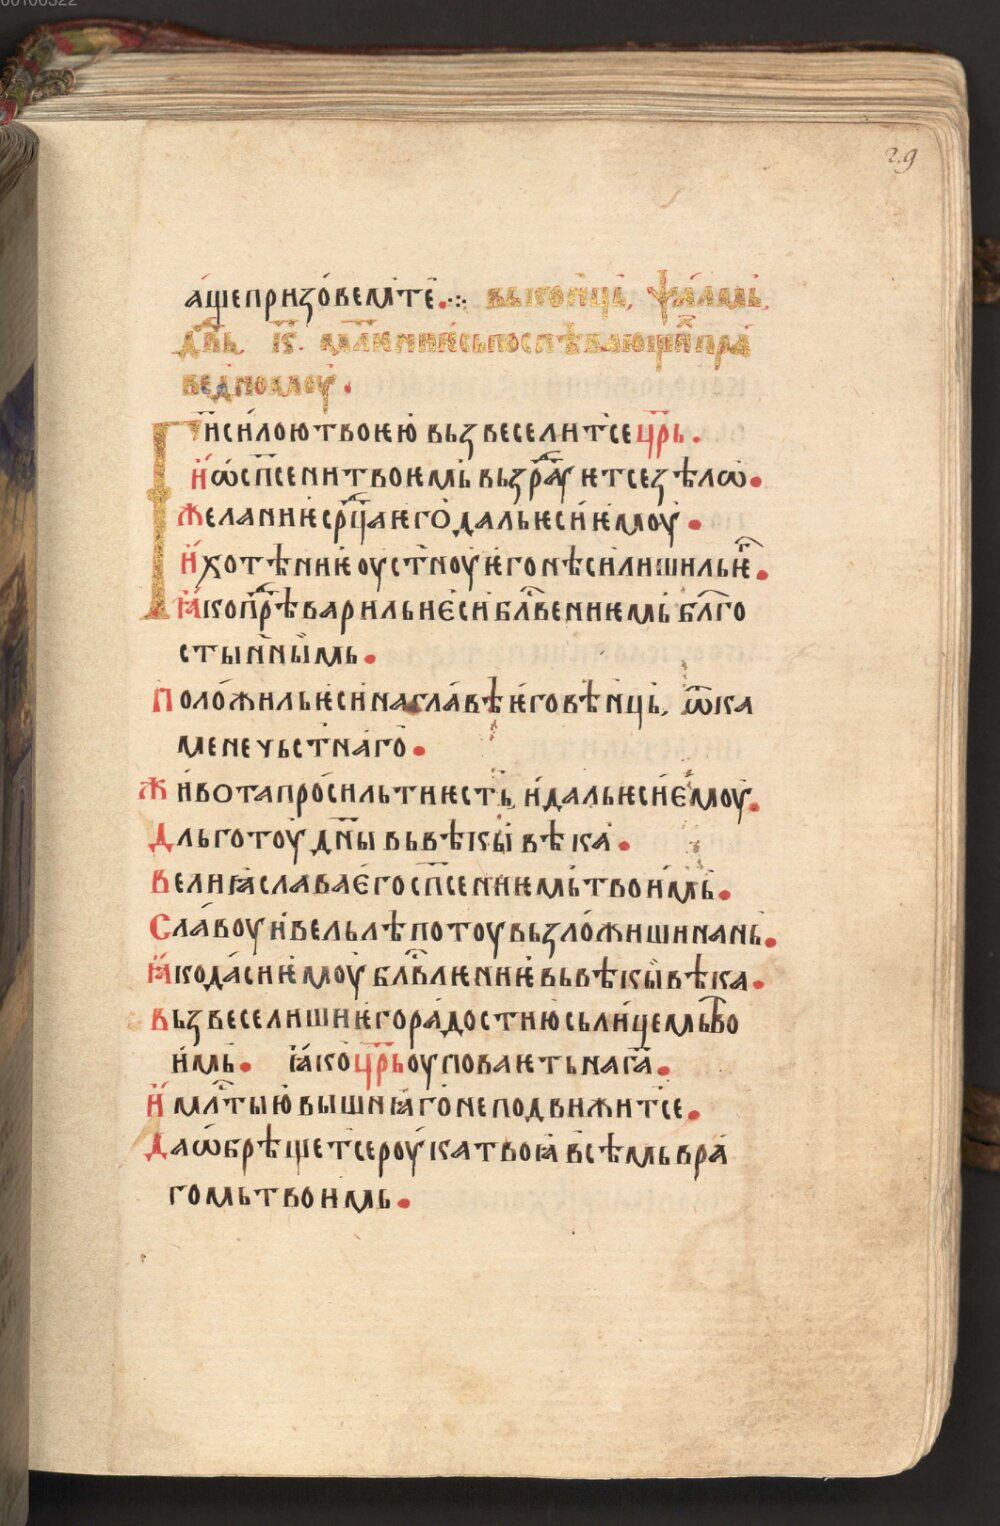 00106322
29
а́щепризо́вемⷮте. вькон́ць, ѱа́ль́мь,
дв҃дь, к҃. мл҃ениѥсьпоспѣвающиⷯпра́
веднѡмоу̀.
Г҃исилоютвоѥю̀ вьꙁвеселитсецр҃ь.
И҆ѡ҆сп҃сенитвоѥмь̀ вьꙁраⷣꙋѥтсеꙁѣлѡ.
Желаниѥср҃цаѥго̀дальѥсиѥ́моу̀.
И҆хотѣниѥоустноуѥ́гонѣсилишильѥⷭ҇.
Ꙗ҆копрⷣѣварильиѐсиблⷭ҇вениѥмь̀ бл҃го
стыннымь.
Поло́жильѥсинаглавѣѥ́говѣнць, ѿка
менечьстна́го.
Жи́вотапроси́льтиѥсть, и҆дальѥсиѐмоу.
Дльготоу̀ дн҃ы вьвѣкыⷤ вѣка̀.
Велиꙗ҆славаѐгосп҃сениѥмьтвои҆мь.
Славоуи҆вельлѣпотоувьꙁло́жишинань.
Ꙗ҆кода́сиѥ́моу̀ блⷭ҇влѥниѥ̀вьвѣкыⷤвѣка.
Вьꙁвеселишиѥ́гора́достию̀сьли́цемьтво
и҆мь. Ꙗ҆ко̀цр҃ьоуповаѥтьнаг҃а.
И҆ млⷭ҇тыю̀вышнꙗ҆го̀неподвижитсе.
Даѡ҆брѣщетсероу҆катвоꙗ҆ всѣмьвра́
гомьтвоимь.